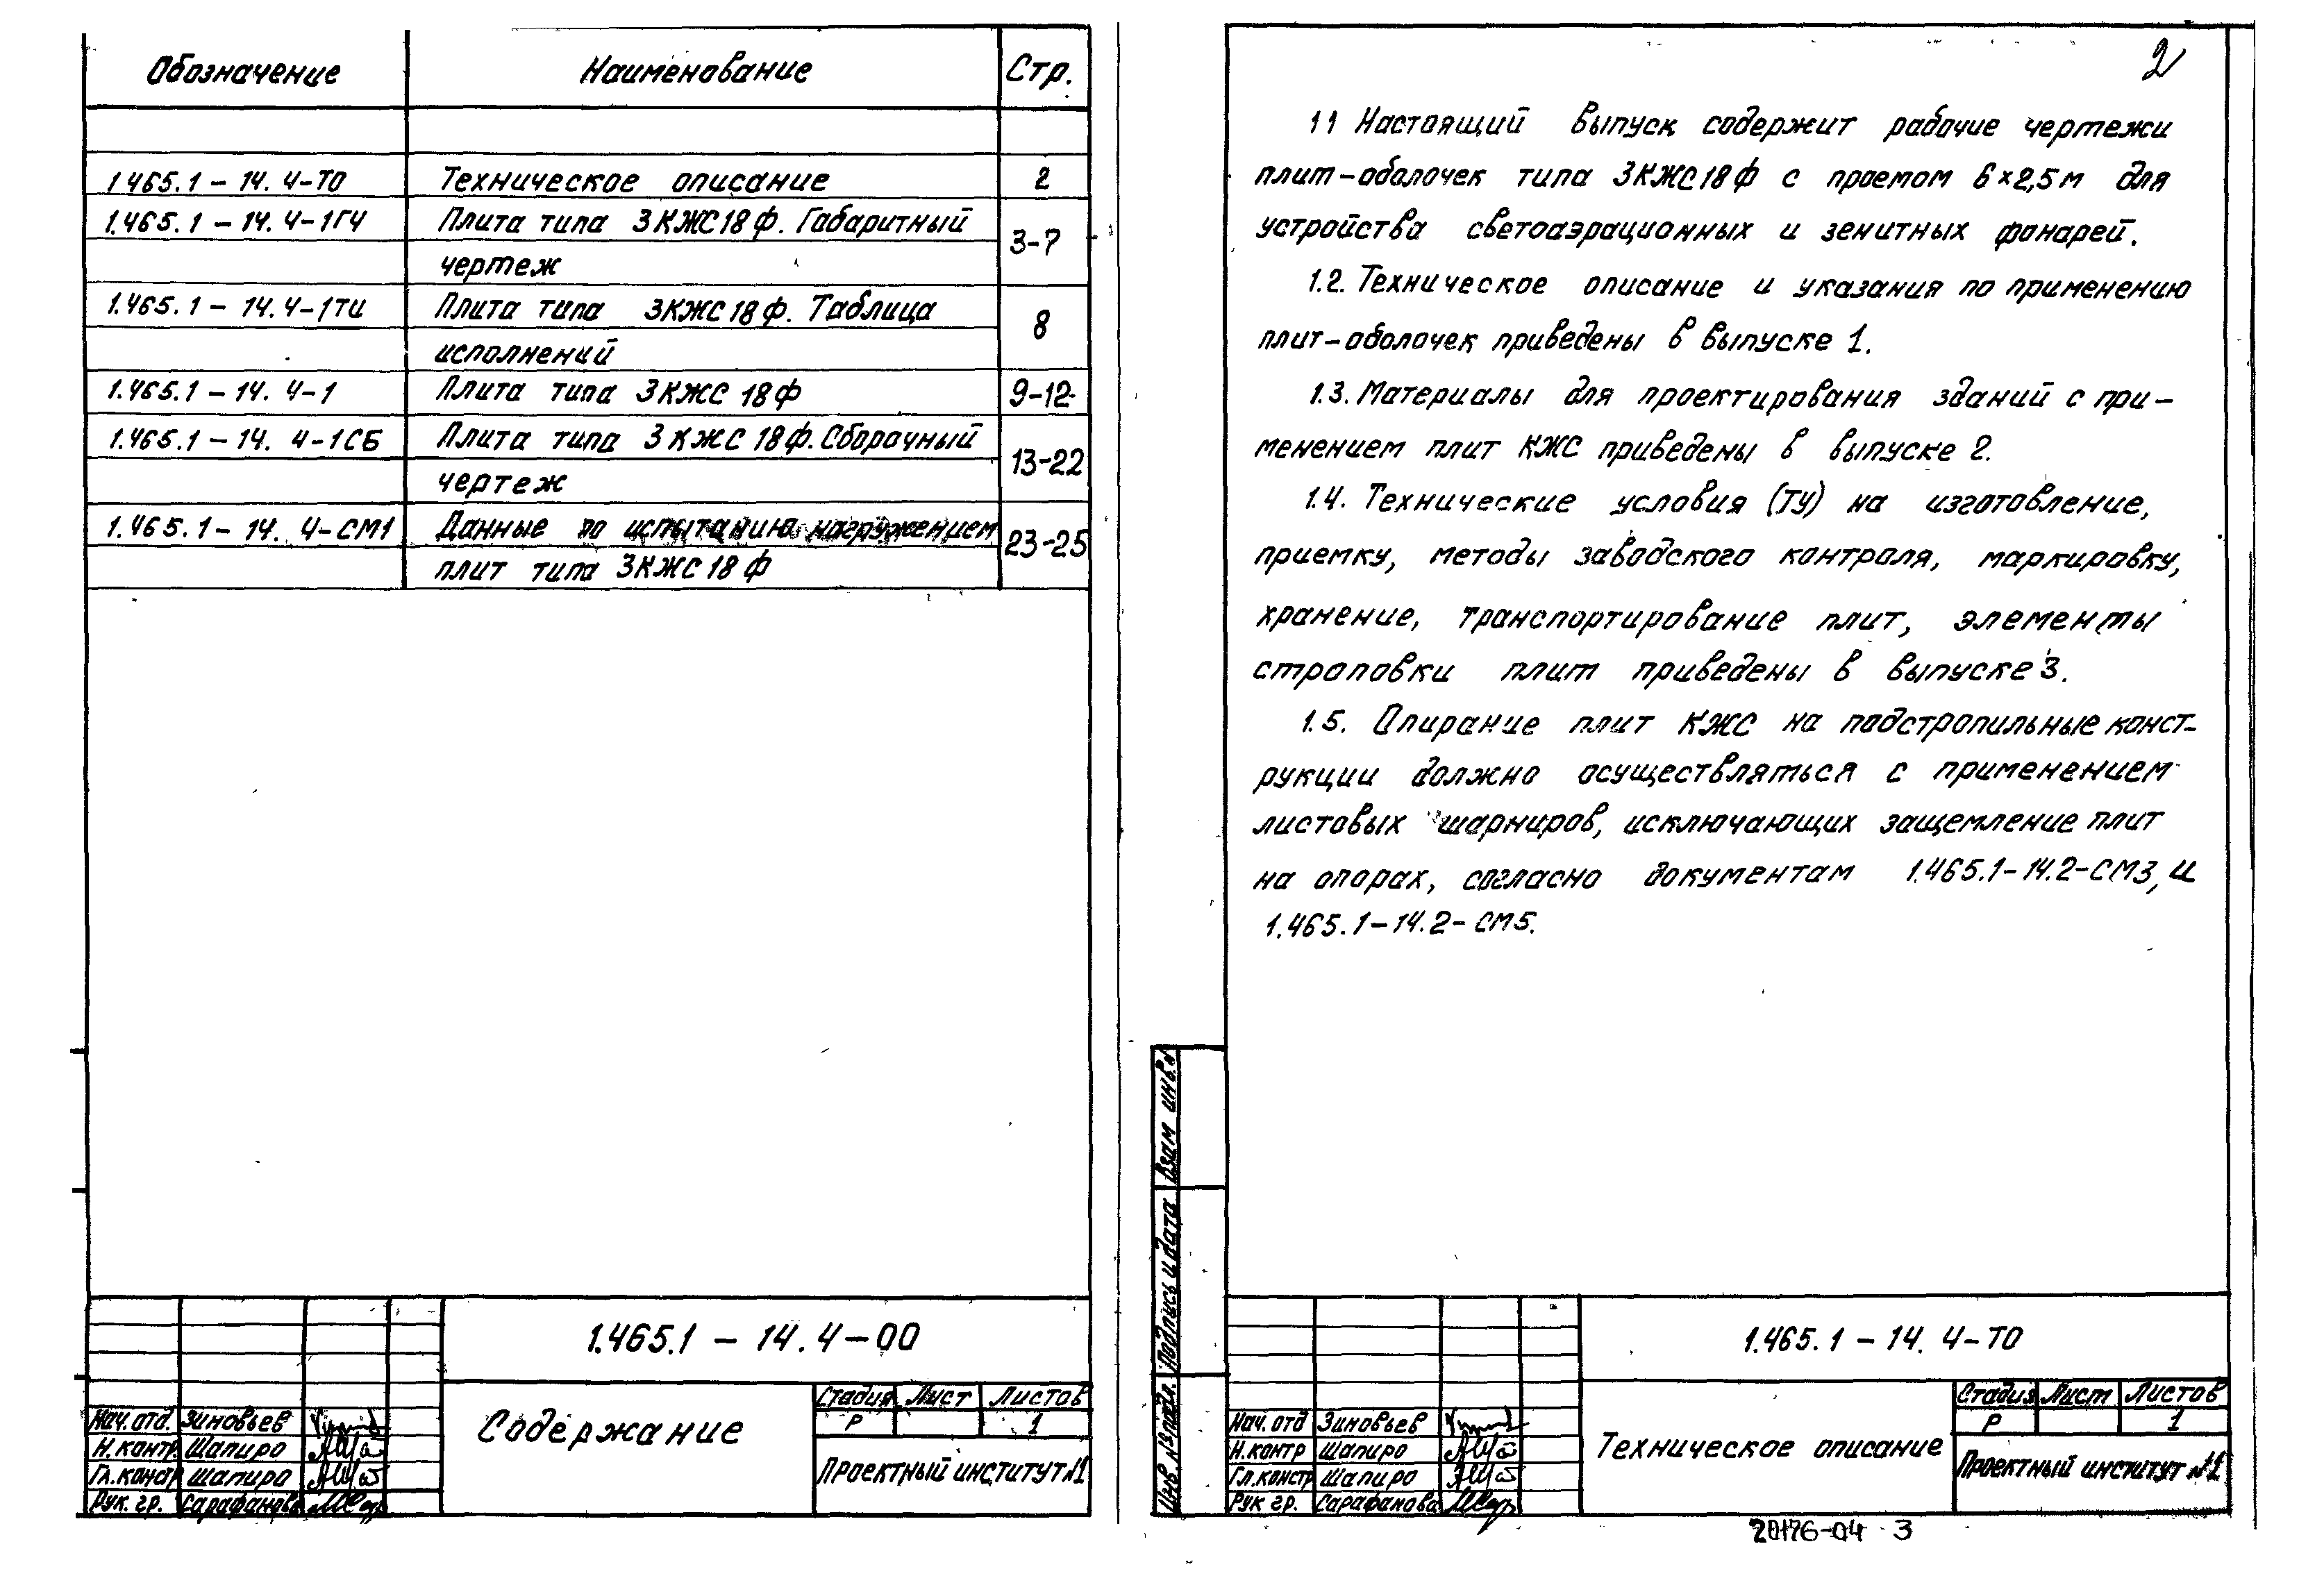 Обозначение Наименование Стр.
1.465.1-14. 4-ТО Техническое описание 2
1.465.1-14. 4-1ГЧ Плита типа 3КЖС18Ф. Габаритный 3-7
чертеж
1.465.1-14.4-1ТИ Плита типа 3КЖС18Ф. Таблица 8
исполнений
1.465.1-14. 4-1 Плита типа 3КЖС 18Ф 9-12
1.465.1-14. 4-1СБ Плита типа 3КЖС 18Ф. Сборочный 13-22
чертеж
1.465.1-14. 4-СМ1 Данные по испытанию нагружением 23-25
плит типа 3КЖС18Ф
1.465.1-14.4-00
Содержание
Стадия Лист Листов
Р 1
Проектный институт №1
Нач. отд. Зиновьев
Н. контр Шапиро
Гл. констр Шапиро
Рук. гр. Сарафанова
2
1 1 Настоящий выпуск содержит рабочие чертежи
плит-оболочек типа 3КЖС18Ф с проемом 6×2,5м для
устройства светоаэрационных и зенитных фонарей.
1.2. Техническое описание и указания по применению
плит-оболочек приведены в выпуске 1.
1.3. Материалы для проектирования зданий с при-
менением плит КЖС приведены в выпуске 2.
1.4. Технические условия (ТУ) на изготовление,
приемку, методы заводского контроля, маркировку,
хранение, транспортирование плит, элементы
строповки плит приведены в выпуске 3.
1.5. Опирание плит КЖС на подстропильные конст-
рукции должно осуществляться с применением
листовых шарниров, исключающих защемление плит
на опорах, согласно документам 1.465.1-14.2-СМ3, и
1.465.1-14.2-СМ5.
Взам инв.№
Подпись и дата
Инв. № подл.
1.465.1-14. 4-ТО
Техническое описание
Стадия Лист Листов
Р 1
Проектный институт №1
Нач. отд Зиновьев
Н. контр Шапиро
Гл. констр Шапиро
Рук гр. Сарафанова
20176-04 3